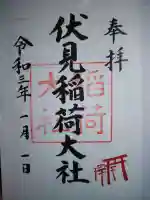 奉拝
伏見稲荷大社
令和三年一月一日
稲荷
大社